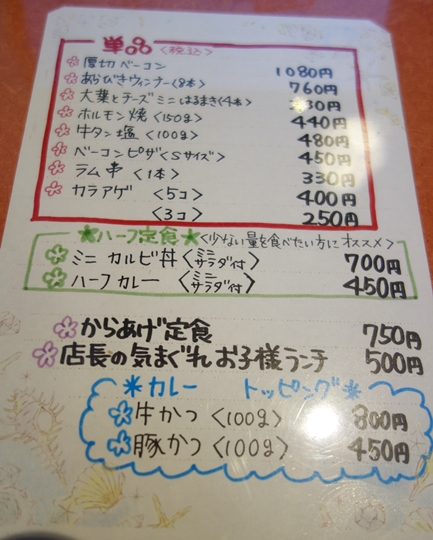 単品 <税込>
厚切ベーコン 1080円
あらびきウィンナー<8本> 760円
大葉とチーズミニはるまき<4本> 330円
ホルモン焼<150g> 440円
牛タン塩<100g> 480円
ベーコンピザ<Sサイズ> 450円
ラム串<1本> 330円
カラアゲ<5コ> 400円
<3コ> 250円
ハーフ定食<少ない量を食べたい方にオススメ>
ミニカルビ丼<ミニサラダ付> 700円
ハーフカレー<ミニサラダ付> 450円
からあげ定食 750円
店長の気まぐれお子様ランチ 500円
*カレー トッピング*
牛かつ<100g> 800円
豚かつ<100g> 450円